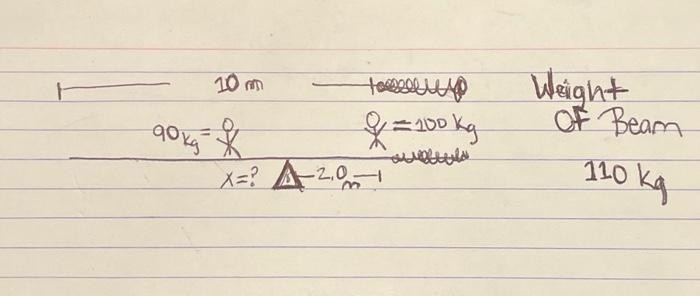 10 m
Weight
Of Beam
90 kg =
= 100 kg
x=?
2.0 m
110 kg